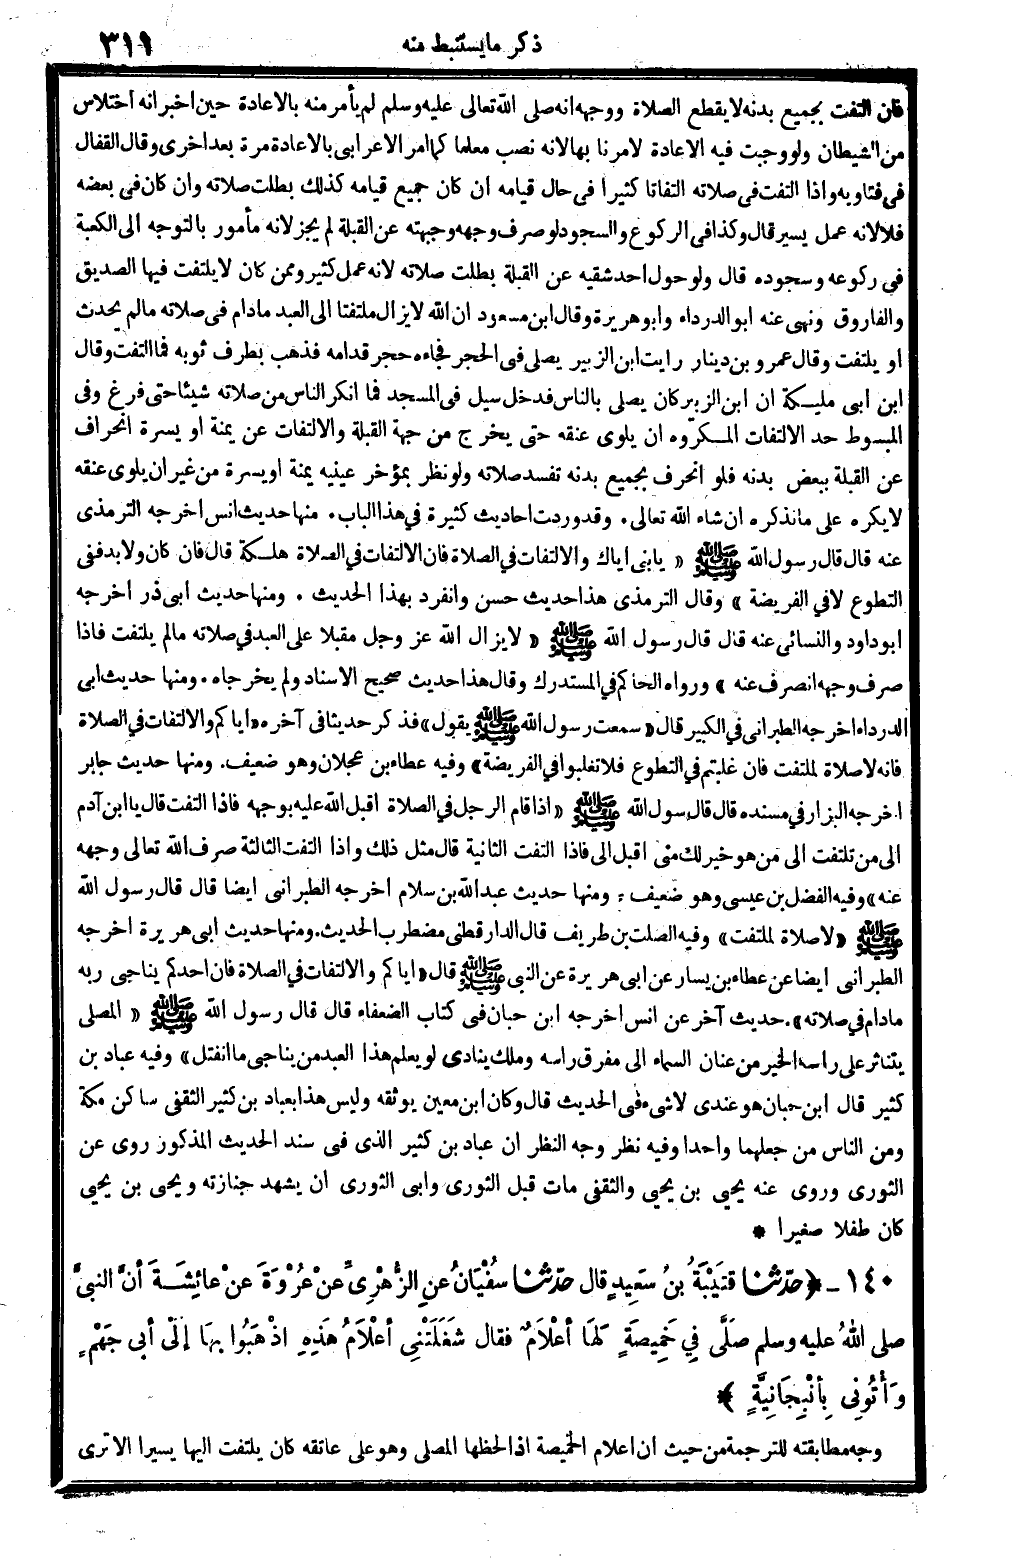 ذكر مايستنبط منه
٣١١
فان التفت بجميع بدنه لايقطع الصلاة ووجهه انه صلى الله تعالى عليه وسلم لم يأمر منه بالاعادة حين اخبر انه اختلاس
من الشيطان ولو وجبت فيه الاعادة لامرنا بها لانه نصب معلما كما امر الاعرابى بالاعادة مرة بعد اخرى وقال القفال
فى فتاويه واذا التفت فى صلاته التفاتا كثيرا فى حال قيامه ان كان جميع قيامه كذلك بطلت صلاته وان كان فى بعضه
فلا لانه عمل يسير قال وكذا فى الركوع والسجود لو صرف وجهه وجبهته عن القبلة لم يجز لانه مأمور بالتوجه الى الكعبة
فى ركوعه وسجوده قال ولو حول احد شقيه عن القبلة بطلت صلاته لانه عمل كثير وممن كان لا يلتفت فيها الصديق
والفاروق ونهى عنه ابو الدرداء وابو هريرة وقال ابن مسعود ان الله لا يزال ملتفتا الى العبد مادام فى صلاته مالم يحدث
او يلتفت وقال عمرو بن دينار رايت ابن الزبير يصلى فى الحجر فجاءه حجر قدامه فذهب بطرف ثوبه فما التفت وقال
ابن ابى مليكة ان ابن الزبير كان يصلى بالناس فدخل سيل فى المسجد فما انكر الناس من صلاته شيئا حتى فرغ وفى
المبسوط حد الالتفات المكروه ان يلوى عنقه حتى يخرج من جهة القبلة والالتفات عن يمنة او يسرة انحراف
عن القبلة ببعض بدنه فلو انحرف بجميع بدنه تفسد صلاته ولو نظر بمؤخر عينيه يمنة او يسرة من غير ان يلوى عنقه
لايكره على مانذكره ان شاء الله تعالى. وقد وردت احاديث كثيرة فى هذا الباب. منها حديث انس اخرجه الترمذى
عنه قال قال رسول الله ﷺ « يابنى اياك والالتفات فى الصلاة فان الالتفات فى الصلاة هلكة قال فان كان ولا بد ففى
التطوع لافى الفريضة » وقال الترمذى هذا حديث حسن وانفرد بهذا الحديث . ومنها حديث ابى ذر اخرجه
ابو داود والنسائى عنه قال قال رسول الله ﷺ « لايزال الله عز وجل مقبلا على العبد فى صلاته مالم يلتفت فاذا
صرف وجهه انصرف عنه » ورواه الحاكم فى المستدرك وقال هذا حديث صحيح الاسناد ولم يخرجاه. ومنها حديث ابى
الدرداء اخرجه الطبرانى فى الكبير قال « سمعت رسول الله ﷺ يقول» فذكر حديثا فى آخره « اياكم والالتفات فى الصلاة
فانه لاصلاة لملتفت فان غلبتم فى التطوع فلا تغلبوا فى الفريضة» وفيه عطاء بن عجلان وهو ضعيف. ومنها حديث جابر
اخرجه البزار فى مسنده قال قال رسول الله ﷺ « اذا قام الرجل فى الصلاة اقبل الله عليه بوجهه فاذا التفت قال يا ابن آدم
الى من تلتفت الى من هو خير لك منى اقبل الى فاذا التفت الثانية قال مثل ذلك واذا التفت الثالثة صرف الله تعالى وجهه
عنه» وفيه الفضل بن عيسى وهو ضعيف : ومنها حديث عبد الله بن سلام اخرجه الطبرانى ايضا قال قال رسول الله
ﷺ « لاصلاة لملتفت» وفيه الصلت بن طريف قال الدارقطنى مضطرب الحديث. ومنها حديث ابى هريرة اخرجه
الطبرانى ايضا عن عطاء بن يسار عن ابى هريرة عن النبى ﷺ قال « اياكم والالتفات فى الصلاة فان احدكم يناجى ربه
مادام فى صلاته» . حديث آخر عن انس اخرجه ابن حبان فى كتاب الضعفاء قال قال رسول الله ﷺ « المصلى
يتناثر على راسه الخير من عنان السماء الى مفرق راسه وملك ينادى لو يعلم هذا العبد من يناجى ما انفتل» وفيه عباد بن
كثير قال ابن حبان هو عندى لاشىء فى الحديث قال وكان ابن معين يوثقه وليس هذا بعباد بن كثير الثقفى ساكن مكة
ومن الناس من جعلهما واحدا وفيه نظر وجه النظر ان عباد بن كثير الذى فى سند الحديث المذكور روى عن
الثورى وروى عنه يحيى بن يحيى والثقفى مات قبل الثورى وابى الثورى ان يشهد جنازته ويحيى بن يحيى
كان طفلا صغيرا *
١٤٠ - ﴿ حدّثنا قتيبَةُ بنُ سَعِيدٍ قال حدّثنا سفْيَانُ عنِ الزُّهْرِىِّ عنْ عُرْوَةَ عنْ عائِشَةَ أنَّ النبىَّ
صلى اللهُ عليه وسلم صَلَّى فِي خَمِيصَةٍ لَهَا أعْلَامٌ فقال شَغَلَتْنِى أعْلَامُ هَذِهِ اذْهَبُوا بِهَا إلَى أبى جَهْمٍ
وَأْتُونِى بِأنْبِجَانِيَّةٍ ﴾ *
وجه مطابقته للترجمة من حيث ان اعلام الخميصة اذا لحظها المصلى وهو على عاتقه كان يلتفت اليها يسيرا الا ترى